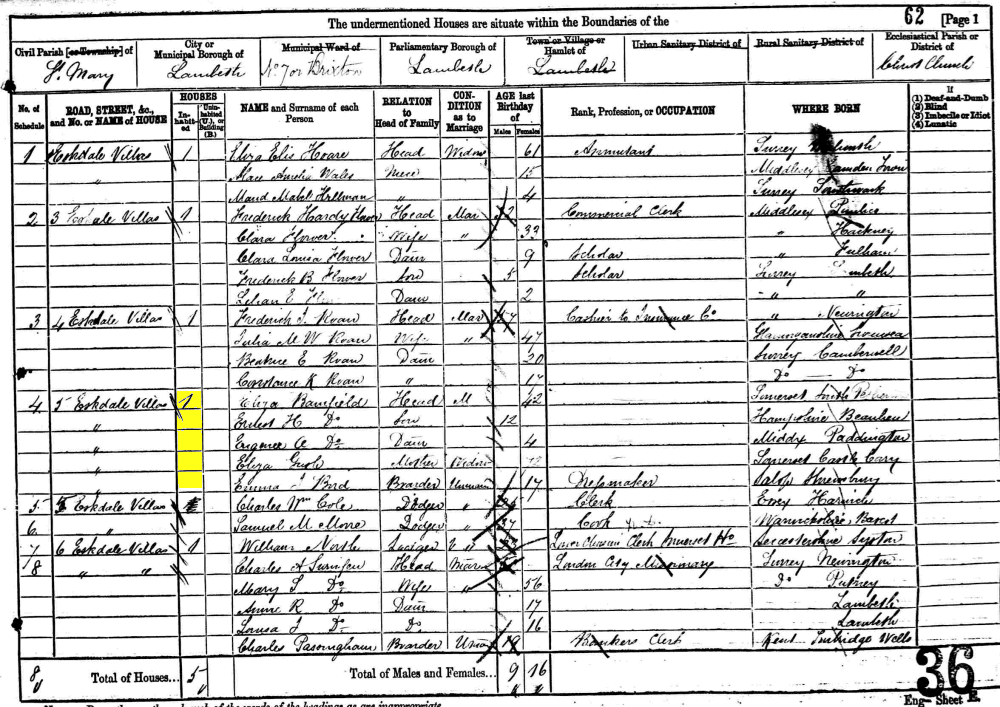 The undermentioned Houses are situate within the Boundaries of the
62 [Page 1
Civil Parish [or Township] of
St. Mary
City or Municipal Borough of
Lambeth
Municipal Ward of
No 7 or Brixton
Parliamentary Borough of
Lambeth
Town or Village or Hamlet of
Lambeth
Urban Sanitary District of
Rural Sanitary District of
Ecclesiastical Parish or District of
Christ Church
No. of Schedule
ROAD, STREET, &c., and No. or NAME of HOUSE
HOUSES
Inhabited
Uninhabited (U.), or Building (B.)
NAME and Surname of each Person
RELATION to Head of Family
CONDITION as to Marriage
AGE last Birthday of
Males
Females
Rank, Profession, or OCCUPATION
WHERE BORN
If
(1) Deaf-and-Dumb
(2) Blind
(3) Imbecile or Idiot
(4) Lunatic
1 Eskdale Villas 1 Eliza Hoare Head Widow 61 Annuitant Surrey
" Amelia Wales Niece 15 Middlesex Camden Town
Maud Mabel " 4 Surrey Southwark
2 3 Eskdale Villas 1 Frederick Hardy Head Mar Commercial Clerk Middlesex Pimlico
Clara Flower Wife " 33 " Hackney
Clara Louisa Flower Daur 9 Scholar " Fulham
Frederick B Flower Son 5 Scholar Surrey Lambeth
Lilian E Daur 2 " "
3 4 Eskdale Villas 1 Frederick Roan Head Mar Cashier to Insurance Co " Newington
Julia M W Roan Wife " 47 Glamorganshire Swansea
Beatrice E Roan Daur 20 Surrey Camberwell
Constance K Roan " 17 Do Do
4 5 Eskdale Villas 1 Eliza Banfield Head M 42 Somerset
" Ernest H Do Son 12 Hampshire Beaulieu
" Eugenee A Do Daur 4 Middx Paddington
" Eliza Mother Widow Somerset Castle Cary
" Emma J Bird Boarder Unmar 17 Dressmaker Salop Shrewsbury
5 5 Eskdale Villas Charles Wm Cole Lodger " Clerk Essex Harwich
6 " Samuel M. More Lodger " Cook Warwickshire
7 6 Eskdale Villas 1 William North Lodger " Clerk Somerset Ho Leicestershire Syston
8 " " Charles A Head Marr London City Missionary Surrey Newington
Mary Do Wife " 56 Do Putney
Annie R Do Daur 17 Lambeth
Louisa J Do Do 16 Lambeth
Charles Boarder Unmar 19 Bankers Clerk Kent Tunbridge Wells
8 Total of Houses... 5
Total of Males and Females... 9 16
36
Eng— Sheet E.